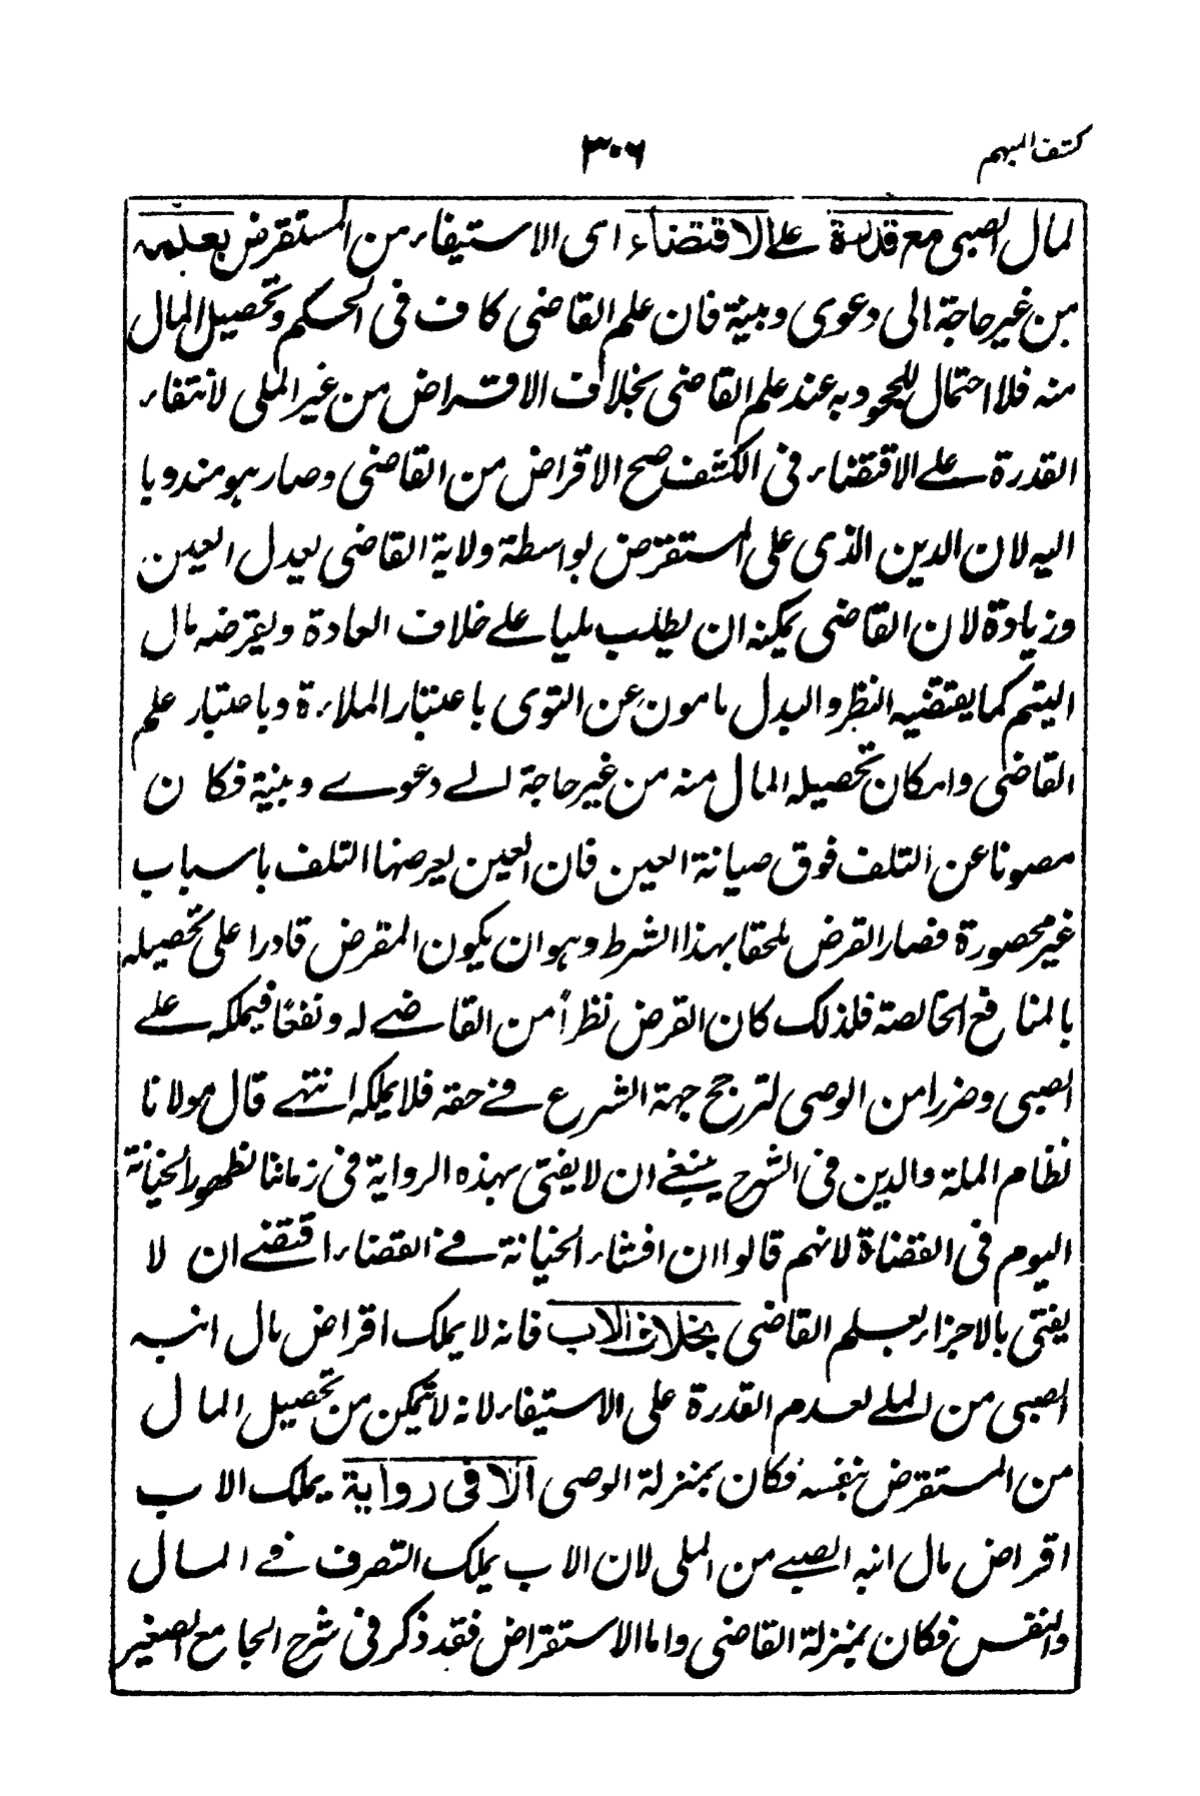 كشف المبهم
٣٠٦
لمال الصبى مع قدرة على الاقتضاء اى الاستيفاء من المستقرض بعلمه
من غير حاجة الى دعوى وبينة فان علم القاضى كاف فى الحكم وتحصيل المال
منه فلا احتمال للجحود به عند علم القاضى بخلاف الاقراض من غير الملى لانتفاء
القدرة على الاقتضاء فى الكشف صح الاقراض من القاضى وصار هو مندوبا
اليه لان الدين الذى على المستقرض بواسطة ولاية القاضى يعدل العين
وزيادة لان القاضى يمكنه ان يطلب مليا على خلاف العادة ويقرضه مال
اليتيم كما يقتضيه النظر والبدل مامون عن التوى باعتبار الملاءة وباعتبار علم
القاضى وامكان تحصيله المال منه من غير حاجة الے دعوے وبينة فكان
مصونا عن التلف فوق صيانة العين فان العين يعرضها التلف باسباب
غير محصورة فصار القرض ملحقا بهذا الشرط وهو ان يكون المقرض قادرا على تحصيله
بالمنافع الخالصة فلذلك كان القرض نظراً من القاضے له ونفعًا فيملكه علے
الصبى وضررا من الوصى لترجح جهة الشرع فے حقه فلا يملكه انتهے قال مولانا
نظام الملة والدين فى الشرح ينبغے ان لا يفتى بهذه الرواية فى زماننا لظهور الخيانة
اليوم فى القضاة لانهم قالوا ان افشاء الخيانة فے القضاء اقتضے ان لا
يفتى بالاجزاء بعلم القاضى بخلاف الاب فانه لا يملك اقراض مال ابنه
الصبى من الملے لعدم القدرة على الاستيفاء لانه لا يتمكن من تحصيل المال
من المستقرض بنفسه فكان بمنزلة الوصى الا فى رواية يملك الاب
اقراض مال ابنه الصبے من الملى لان الاب يملك التصرف فے المال
والنفس فكان بمنزلة القاضى واما الاستقراض فقد ذكر فى شرح الجامع الصغير